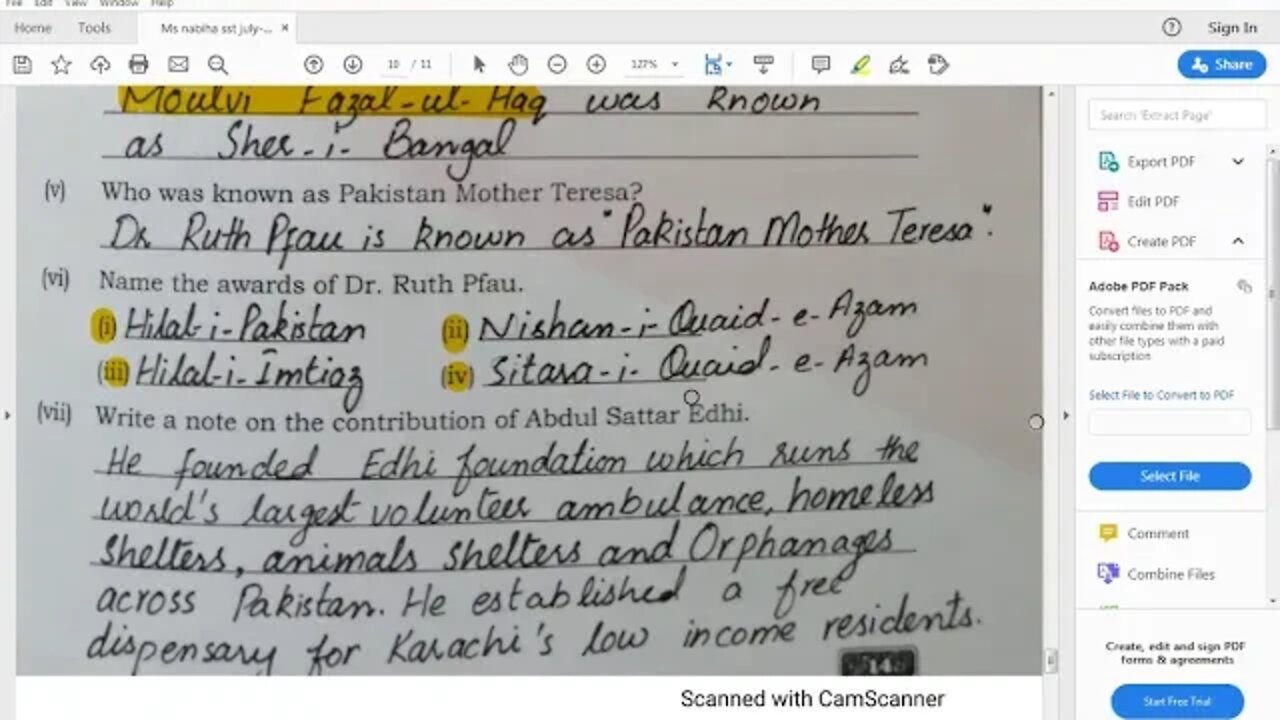 File Edit View Window Help
Home Tools Ms nabiha sst july-... × Sign In
10 / 11 127% Share
Moulvi Fazal-ul-Haq was known
as Sher-i-Bangal
(v) Who was known as Pakistan Mother Teresa?
Dr. Ruth Pfau is known as "Pakistan Mother Teresa".
(vi) Name the awards of Dr. Ruth Pfau.
(i) Hilal-i-Pakistan (ii) Nishan-i-Quaid-e-Azam
(iii) Hilal-i-Imtiaz (iv) Sitara-i-Quaid-e-Azam
(vii) Write a note on the contribution of Abdul Sattar Edhi.
He founded Edhi foundation which runs the
world's largest volunteer ambulance, homeless
shelters, animals shelters and Orphanages
across Pakistan. He established a free
dispensary for Karachi's low income residents.
14
Scanned with CamScanner
Search 'Extract Page'
Export PDF
Edit PDF
Create PDF
Adobe PDF Pack
Convert files to PDF and
easily combine them with
other file types with a paid
subscription
Select File to Convert to PDF
Select File
Comment
Combine Files
Create, edit and sign PDF
forms & agreements
Start Free Trial